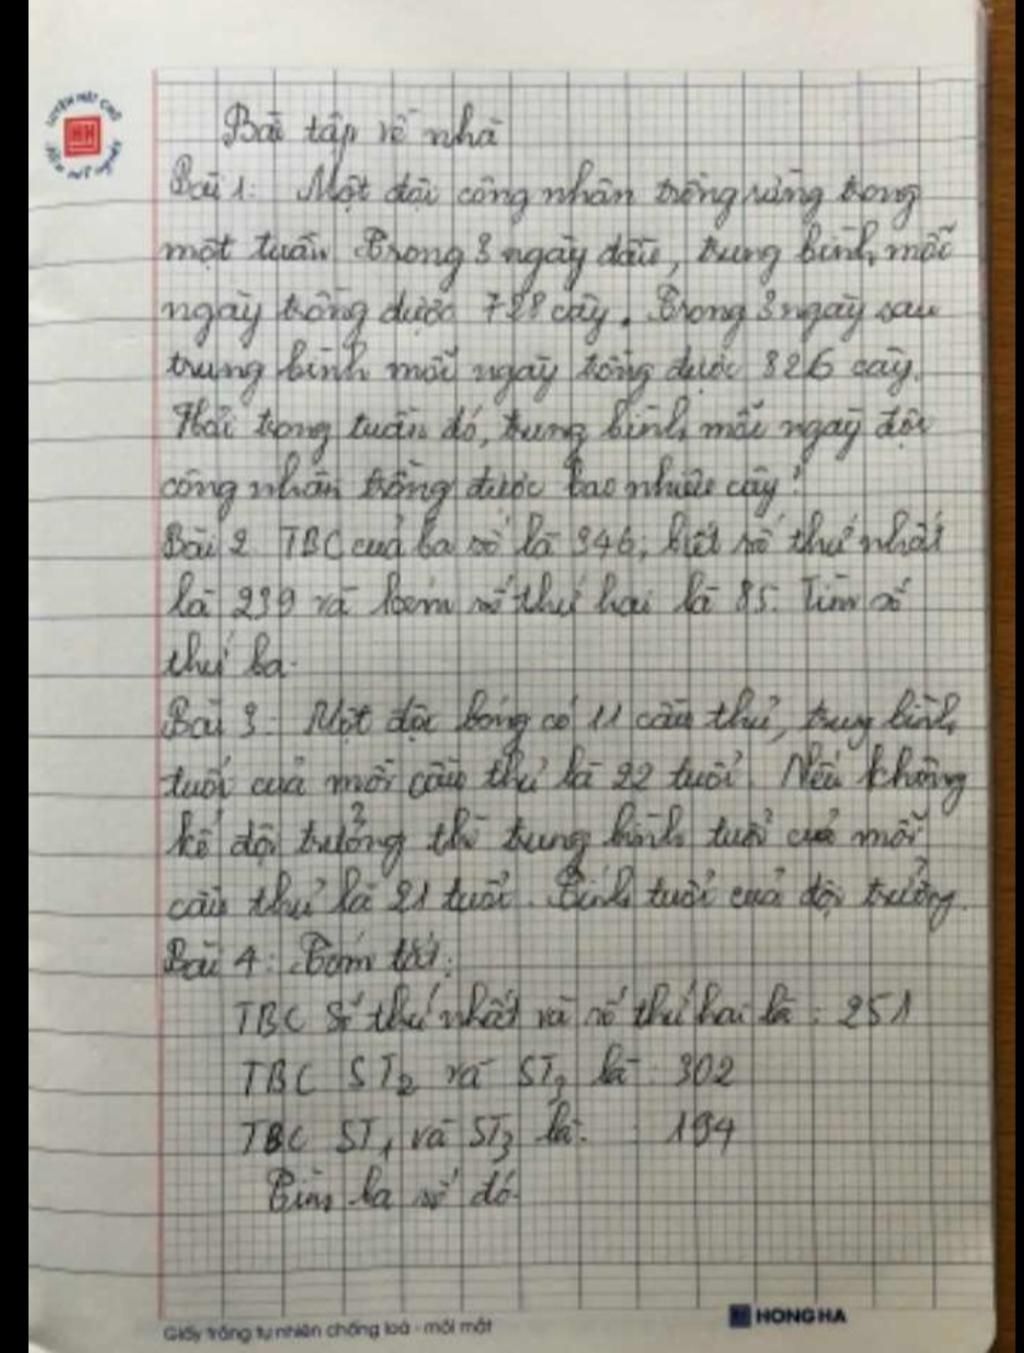 Bài tập về nhà
Bài 1: Một đội công nhân trồng rừng trong
một tuần. Trong 3 ngày đầu, trung bình mỗi
ngày trồng được 728 cây. Trong 3 ngày sau
trung bình mỗi ngày trồng được 826 cây.
Hỏi trong tuần đó, trung bình mỗi ngày đội
công nhân trồng được bao nhiêu cây?
Bài 2 TBC của ba số là 346, biết số thứ nhất
là 239 và kém số thứ hai là 85. Tìm số
thứ ba.
Bài 3: Một đội bóng có 11 cầu thủ, trung bình
tuổi của mỗi cầu thủ là 22 tuổi. Nếu không
kể đội trưởng thì trung bình tuổi của mỗi
cầu thủ là 21 tuổi. Tính tuổi của đội trưởng.
Bài 4: Tóm tắt:
TBC Số thứ nhất và số thứ hai là : 251
TBC ST2 và ST3 là : 302
TBC ST1 và ST3 là : 194
Tìm ba số đó.
Giấy trắng tự nhiên chống loá - mỏi mắt
HONG HA